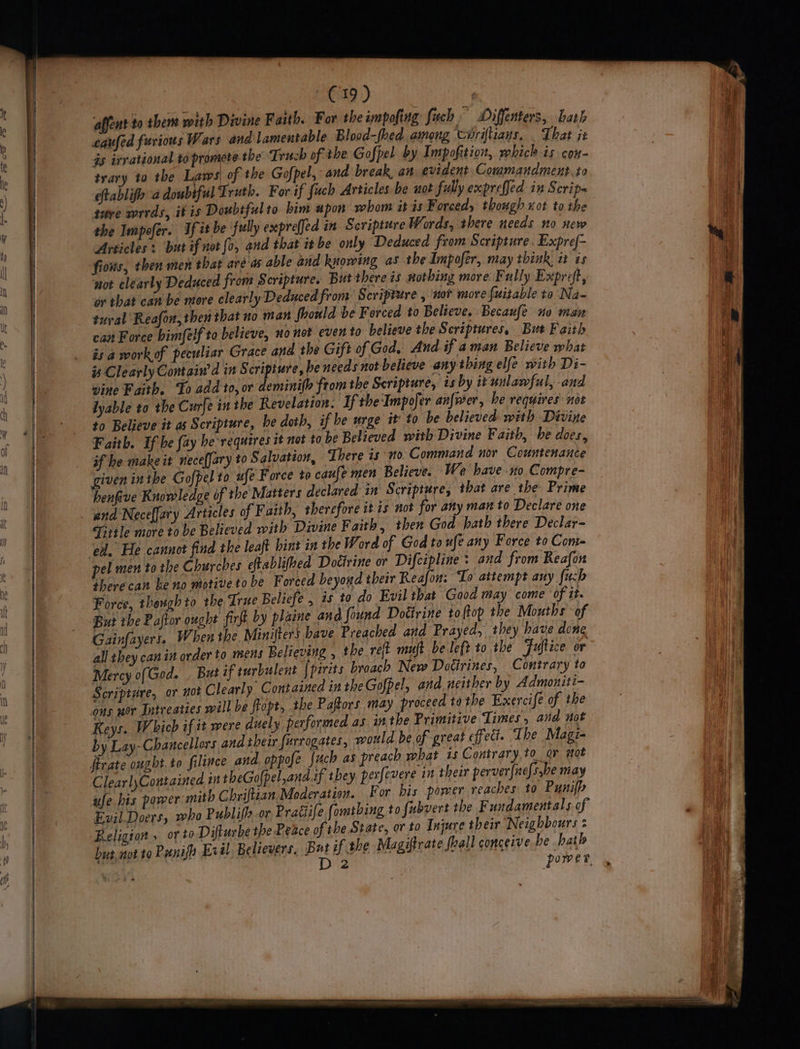 (19)
aſſent to them with Divine Faith. For the impoſing ſuch Diſſenters, hath
cauſed furious Wars and lamentable Blood-ſhed among Chriſtians. That it
is irrational to promote the Truth of the Goſpel by Impoſition, which is con-
trary to the Laws of the Goſpel, and break an evident Commandment to
eſtabliſh a doubtful Truth. For if ſuch Articles be not fully expreſſed in Scrip-
ture words, it is Doubtful to him upon whom it is Forced, though not to the
the Impoſer. If it be fully expreſſed in Scripture Words, there needs no new
Articles: but if not ſo, and that it be only Deduced from Scripture Expreſ-
ſions, then men that are as able and knowing as the Impoſer, may think it is
not clearly Deduced from Scripture. But there is nothing more Fully Expreſt,
or that can be more clearly Deduced from Scripture, nor more ſuitable to Na-
tural Reaſon, then that no man ſhould be Forced to Believe. Becauſe no man
can Force himſelf to believe, no not even to believe the Scriptures. But Faith
is a work of peculiar Grace and the Gift of God. And if a man Believe what
is Clearly Contain'd in Scripture, he needs not believe any thing elſe with Di-
vine Faith. To add to, or deminiſh from the Scripture, is by it unlawful, and
lyable to the Curſe in the Revelation. If the Impoſer anſwer, he requires not
to Believe it as Scripture, he doth, if he urge it to be believed with Divine
Faith. If he ſay he requires it not to be Believed with Divine Faith, he does,
if he make it neceſſary to Salvation, There is no Command nor Countenance
given in the Goſpel to uſe Force to cauſe men Believe. We have no Compre-
henſive Knowledge of the Matters declared in Scripture, that are the Prime
and Neceſſary Articles of Faith, therefore it is not for any man to Declare one
Tittle more to be Believed with Divine Faith, then God hath there Declar-
ed. He cannot find the leaſt hint in the Word of God to uſe any Force to Com-
pel men to the Churches eſtabliſhed Doctrine or Diſcipline: and from Reaſon
there can be no motive to be Forced beyond their Reaſon: To attempt any ſuch
Force, though to the True Beliefe, is to do Evil that Good may come of it.
But the Paſtor ought firſt by plaine and ſound Doctrine to ſtop the Mouths of
Gainſayers. When the Miniſters have Preached and Prayed, they have done
all they can in order to mens Believing, the reſt muſt be left to the Juſtice or
Mercy of God. But if turbulent ſpirits broach New Doctrines, Contrary to
Scripture, or not Clearly Contained in the Goſpel, and neither by Admoniti-
ons nor Intreaties will be ſtopt, the Paſtors may proceed to the Exerciſe of the
Keys. Which if it were duely performed as in the Primitive Times, and not
by Lay-Chancellors and their ſurrogates, would be of great effect. The Magi-
ſtrate ought to ſilince and oppoſe ſuch as preach what is Contrary to or not
Clearly Contained in the Goſpel, and if they perſevere in their perverſneſs, he may
uſe his power with Chriſtian Moderation. For his power reaches to Puniſh
Evil Doers, who Publiſh or Practiſe ſomthing to ſubvert the Fundamentals of
Religion, or to Diſturbe the Peace of the State, or to Injure their Neighbours:
but not to Puniſh Evil Believers. But if the Magiſtrate ſhall conceive he hath
D 2 power